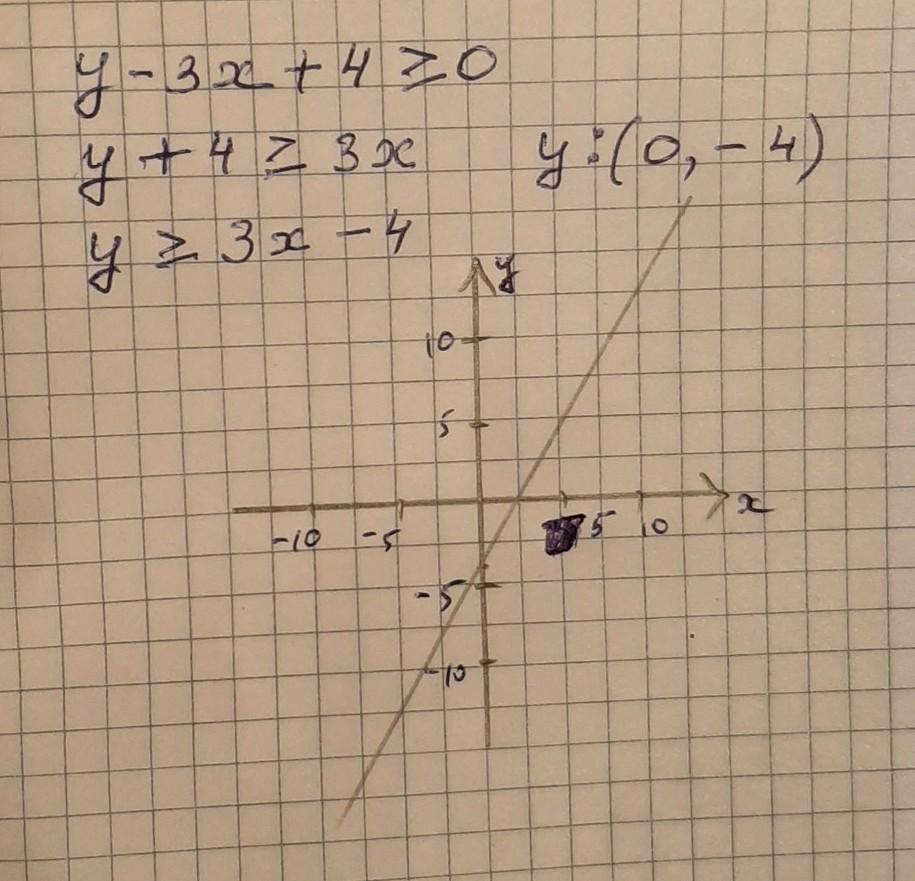 y - 3x + 4 ≥ 0
y + 4 ≥ 3x
y:(0, -4)
y ≥ 3x - 4
y
10
5
-10
-5
5
10
x
-5
-10